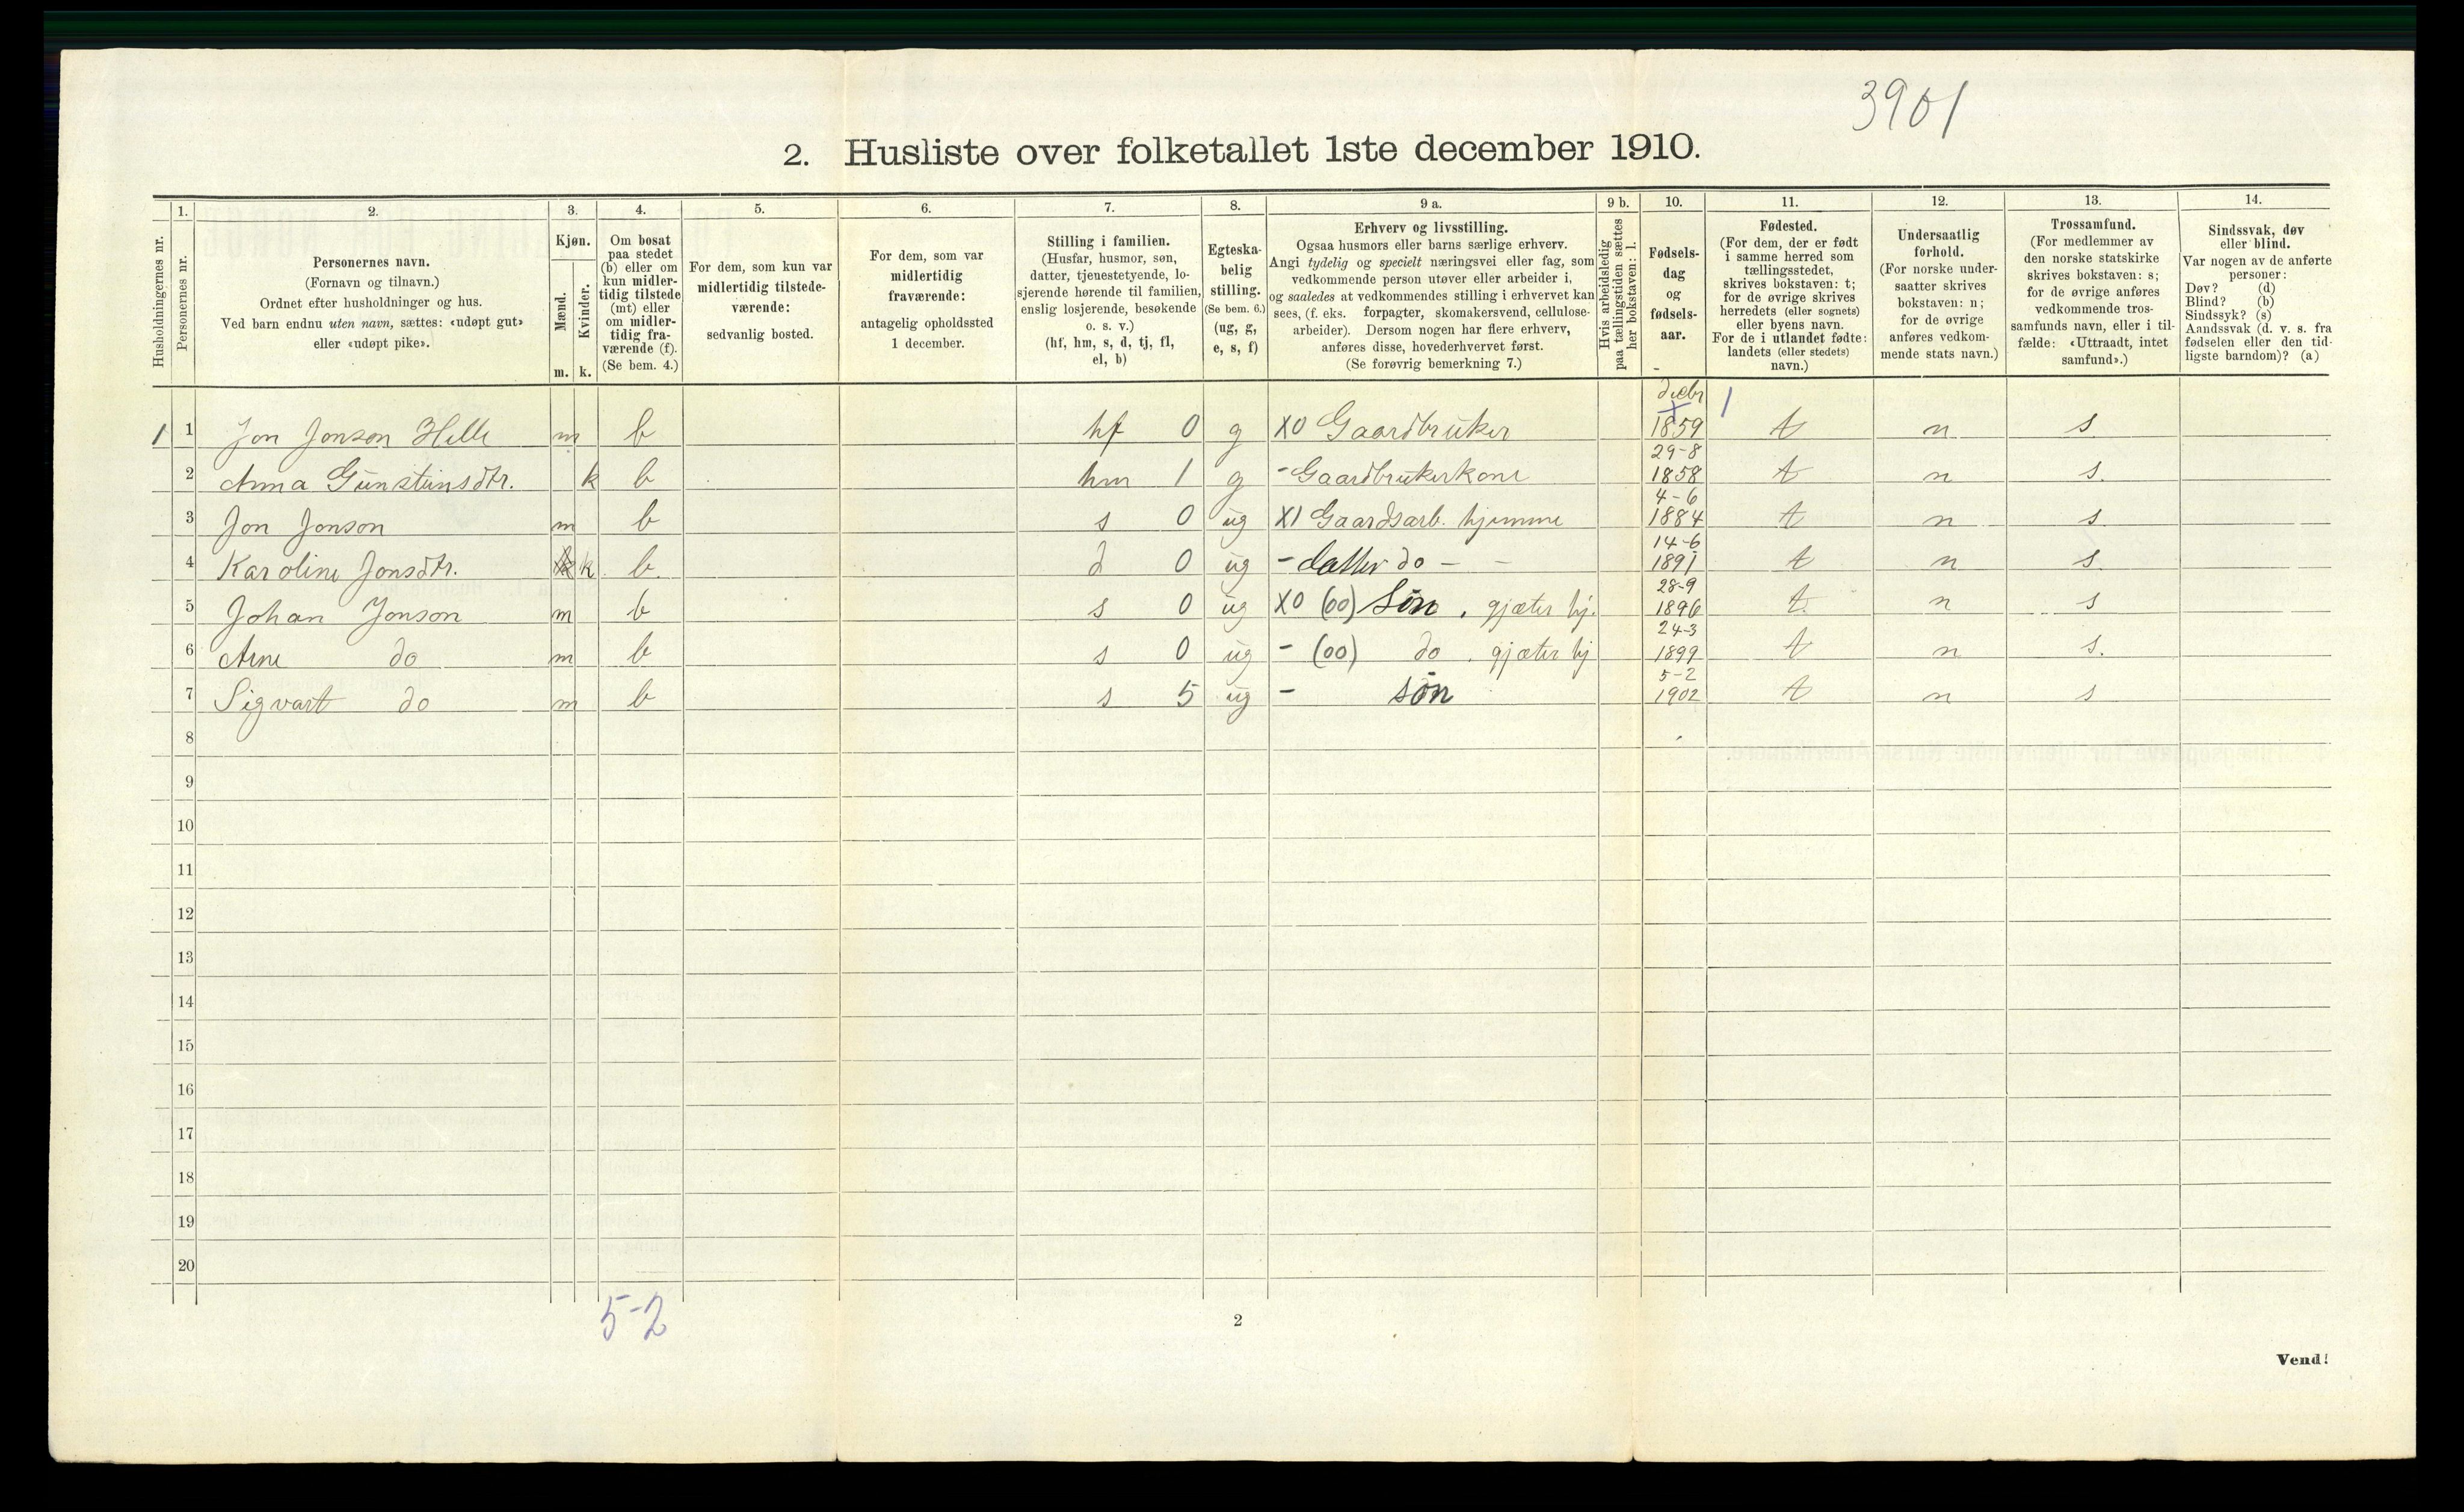 3901
2. Husliste over folketallet 1ste december 1910.
Husholdningernes nr.
1.
Personernes nr.
2.
Personernes navn.
(Fornavn og tilnavn.)
Ordnet efter husholdninger og hus.
Ved barn endnu uten navn, sættes: «udøpt gut»
eller «udøpt pike».
3.
Kjøn.
Mænd.
Kvinder.
m. k.
4.
Om bosat
paa stedet
(b) eller om
kun midler-
tidig tilstede
(mt) eller
om midler-
tidig fra-
værende (f).
(Se bem. 4.)
5.
For dem, som kun var
midlertidig tilstede-
værende:
sedvanlig bosted.
6.
For dem, som var
midlertidig
fraværende:
antagelig opholdssted
1 december.
7.
Stilling i familien.
(Husfar, husmor, søn,
datter, tjenestetyende, lo-
sjerende hørende til familien,
enslig losjerende, besøkende
o. s. v.)
(hf, hm, s, d, tj, fl,
el, b)
8.
Egteska-
belig
stilling.
(Se bem. 6.)
(ug, g,
e, s, f)
9 a.
Erhverv og livsstilling.
Ogsaa husmors eller barns særlige erhverv.
Angi tydelig og specielt næringsvei eller fag, som
vedkommende person utøver eller arbeider i,
og saaledes at vedkommendes stilling i erhvervet kan
sees, (f. eks. forpagter, skomakersvend, cellulose-
arbeider). Dersom nogen har flere erhverv,
anføres disse, hovederhvervet først.
(Se forøvrig bemerkning 7.)
9 b.
Hvis arbeidsledig
paa tællingstiden sættes
her bokstaven: l.
10.
Fødsels-
dag
og
fødsels-
aar.
11.
Fødested.
(For dem, der er født
i samme herred som
tællingsstedet,
skrives bokstaven: t;
for de øvrige skrives
herredets (eller sognets)
eller byens navn.
For de i utlandet fødte:
landets (eller stedets)
navn.)
12.
Undersaatlig
forhold.
(For norske under-
saatter skrives
bokstaven: n;
for de øvrige
anføres vedkom-
mende stats navn.)
13.
Trossamfund.
(For medlemmer av
den norske statskirke
skrives bokstaven: s;
for de øvrige anføres
vedkommende tros-
samfunds navn, eller i til-
fælde: «Uttraadt, intet
samfund».)
14.
Sindssvak, døv
eller blind.
Var nogen av de anførte
personer:
Døv? (d)
Blind? (b)
Sindssyk? (s)
Aandssvak (d. v. s. fra
fødselen eller den tid-
ligste barndom)? (a)
1 1 Jon Jonson Helle m b hf 0 g X0 Gaardbruker 1859 t n s
2 Anna Gunsteinsdtr. k b hm 1 g - Gaardbrukerkone 29-8 1858 t n s.
3 Jon Jonson m b s 0 ug X1 Gaardsarb. hjemme 4-6 1884 t n s
4 Karoline Jonsdtr. k b. d 0 ug - datter do - - 14-6 1891 t n s.
5 Johan Jonson m b s 0 ug X0 (00) Søn. gjæter hj. 28-9 1896 t. n s
6 Arne do m b s 0 ug - (00) do. gjæter hj 24-3 1899 t n s.
7 Sigvart do m b s 5 ug - søn 5-2 1902 t n s
8
9
10
11
12
13
14
15
16
17
18
19
20
5-2
2
Vend!